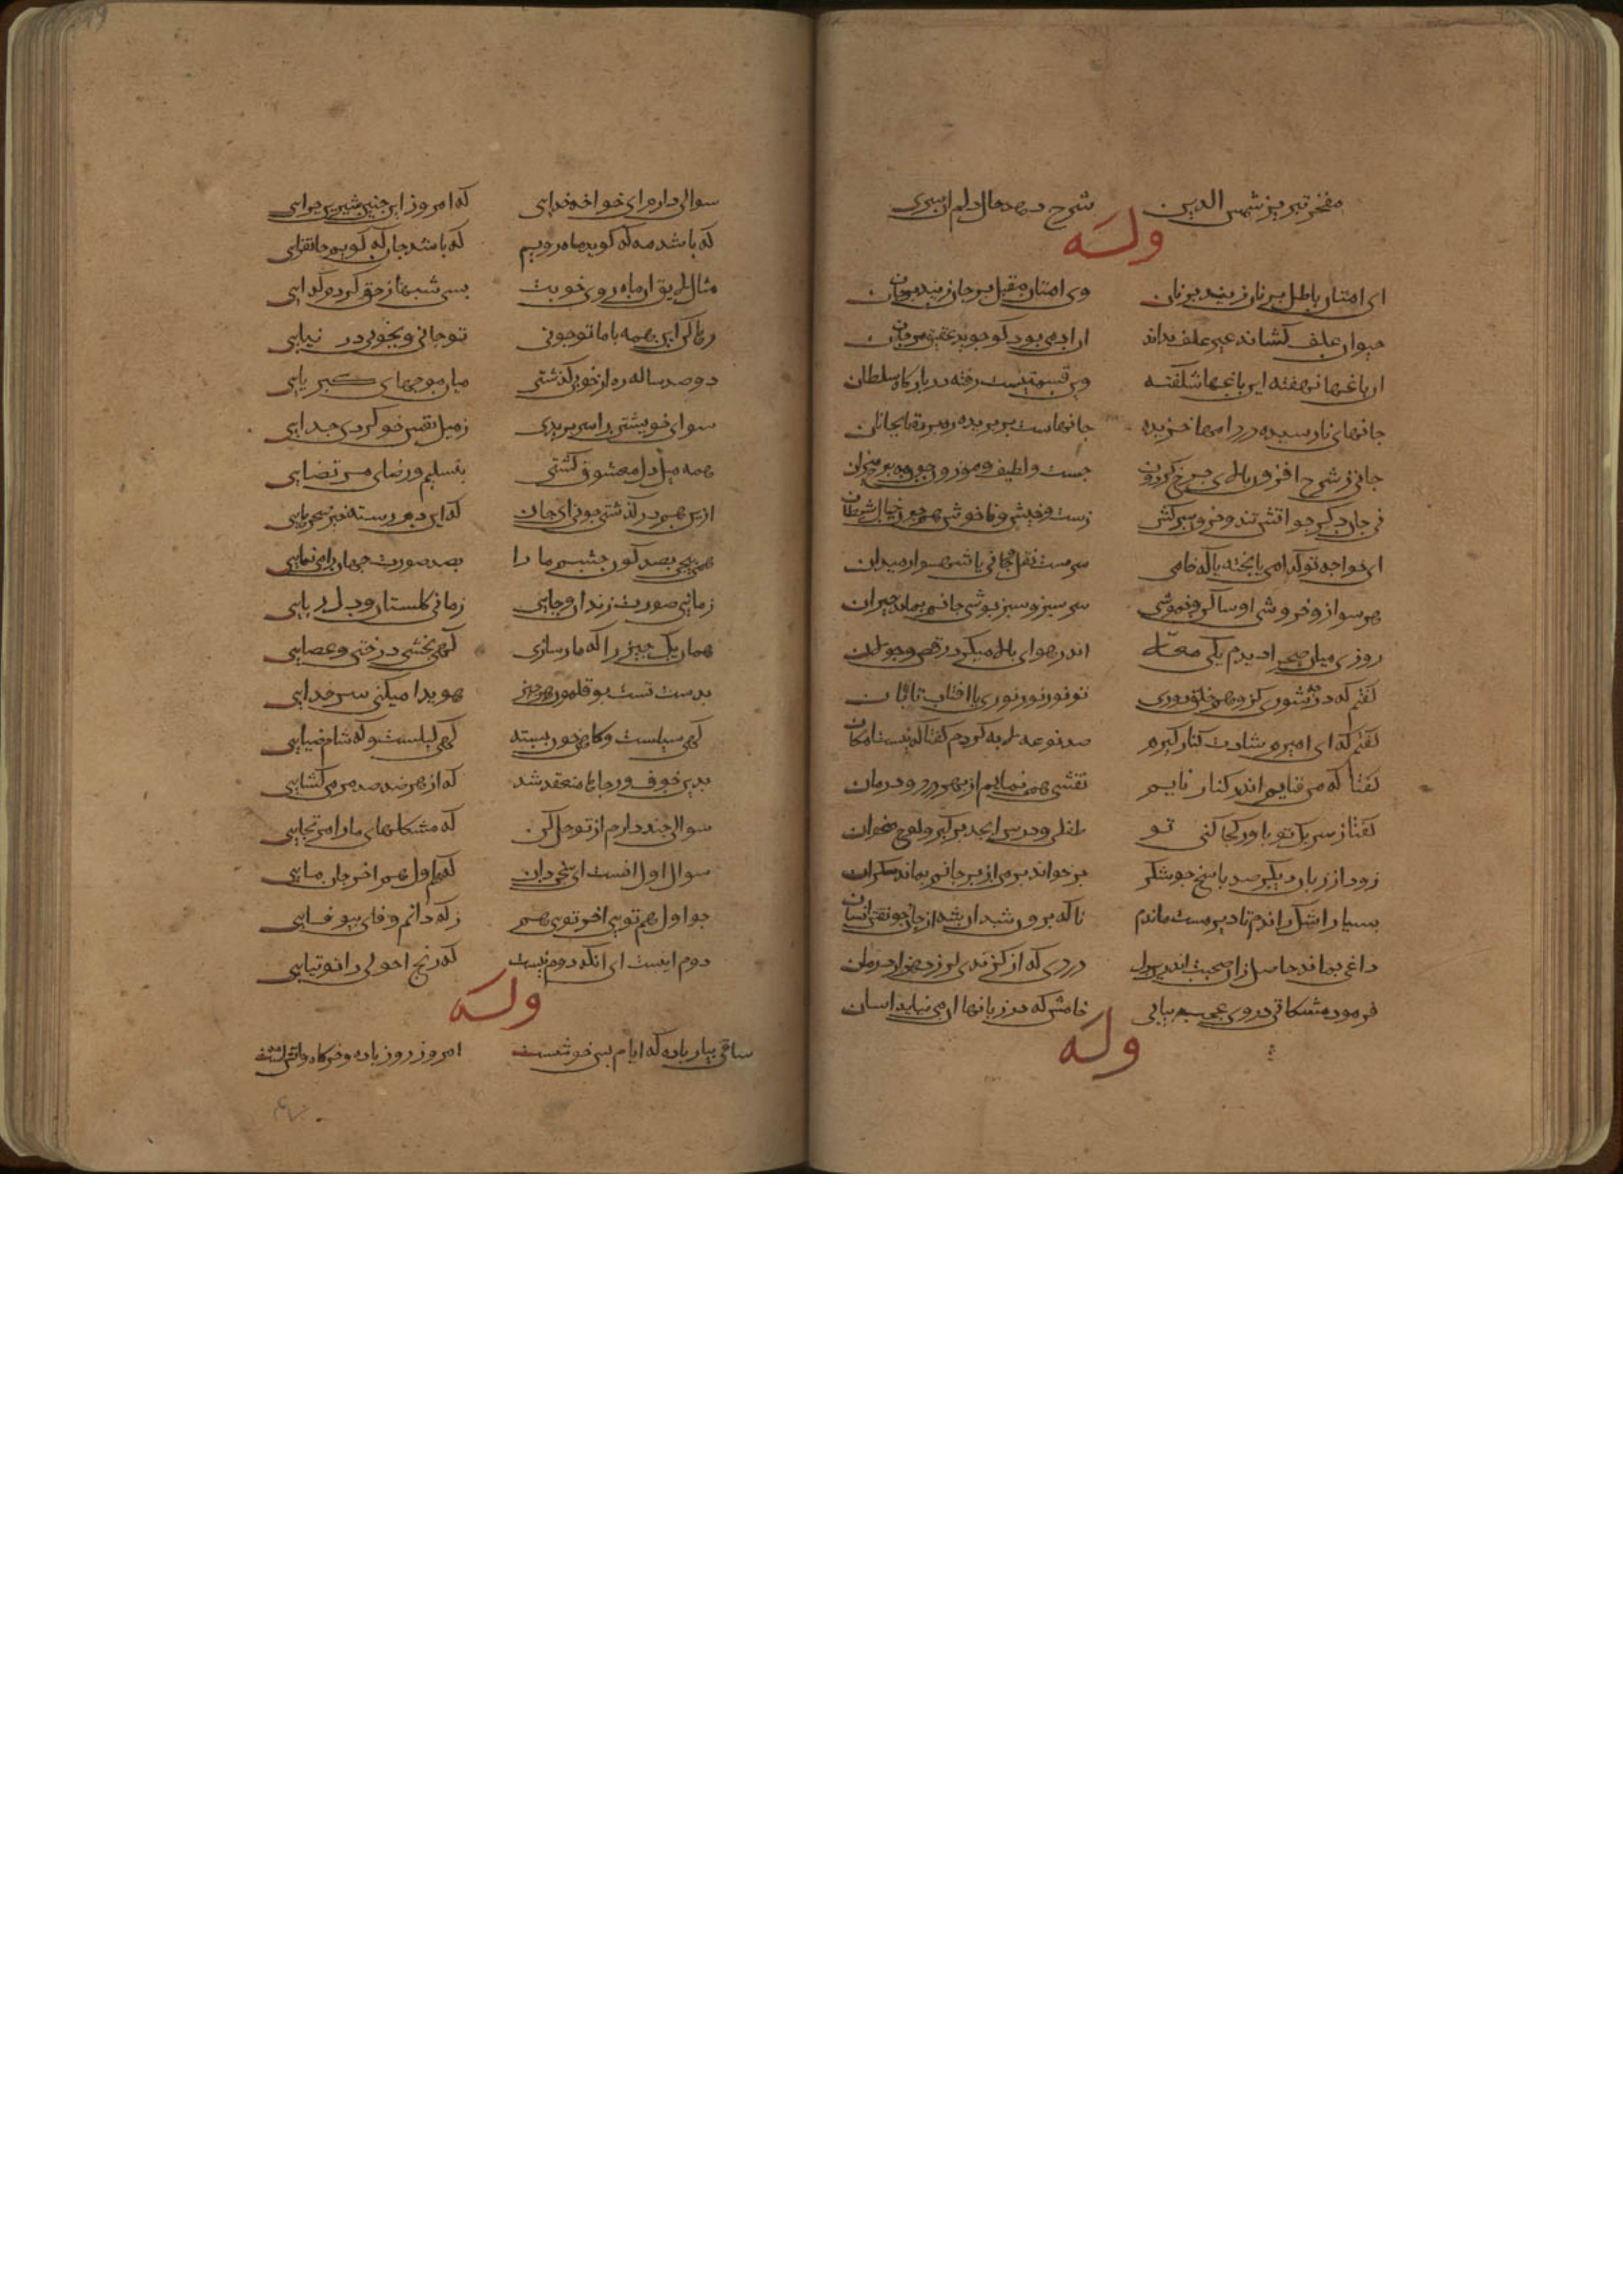 مفخر تبریز شمس الدین شرح دهد حال دلم ان سری
وله
ای امتنان باطل بر نان زنید بر نان وی امتنان مقبل بر جان زنید بر جان
حیوان علف کشاند غیر علف نداند ان ادمی بود کو جوید عقیق و مرجان
ان باغها نهفته این باغها شکفته وین قسمتیست رفته در بارکاه سلطان
جانهای نارسیده در دامها خزیده جانهاست بر پریده ره برده تا بجانان
جانی ز شرح افزون بالای چرخ کردون چست و لطیف و موزون چون مه برج میزان
جان دکر چو اتش تند و حرون و سرکش زشت و خبیث و ناخوش همچون خیال شیطان
ای خواجه تو کدامی یا پخته یا که خامی سرمست نقل و جامی یا شهسوار میدان
روزی میان صحرا دیدم یکی معلا اندر هوای بالا میکرد رقص و جولان
هر سو ازو خروشی او ساکن و خموشی سرسبز و سبز پوشی جانم بماند حیران
کفتم که در چه شوری کز وهم خلق دوری تو نور نور نوری یا افتاب تابان
کفتم که ای امیرم شادت کنار کیرم صد نوع لابه کردم کفتا که نیست امکان
کفتا که من قایم اندر کنار نایم نقشی همی نمایم از بهر درد و درمان
کفتا ز سر یک تو باور کجا کنی تو طفلی و درس ابجد برکیر لوح و میخوان
زود از زبان دیکر صد پاسخ چو شکر برخواند برمن از بر جانم بماند سکران
بسیار اشک راندم تا دیر مست ماندم ناکه برون شد ان شه از جان چو نقش انسان
داغی بماند حاصل زان صحبت اندرین دل دردی که از کزندی لرزد هزار درمان
فرمود مشکلاتی در وی عجب بیانی خامش که در زبانها ان می نیاید اسان
وله
سوالی دارم ای خواجه خدایی که امروز این چنین شیرین چرایی
که باشد مه که کویم ماه رویی که باشد جان که کویم جانفزایی
مثال لایق ان ماه روی خوبت بسی شبها ز حق کردم کدایی
رها کن این همه با ما تو چونی تو جانی و بچونی در نیایی
دو صد ساله ره از خود کذشتی میان موجهای کبریایی
سوای خویشتن را سر بریدی ز میل نفس خود کردی جدایی
همه میل دل معشوق کشتی بتسلیم و رضا و مرتضایی
ازین هم در کذشتی چونی ای جان که این دم رستخیز سحرهایی
همی پیچی بصد کون چشم ما را بصد صورت جهان را می نمایی
زمانی صورت زندان و چاهی زمانی کلستان و دلربایی
همان یک چیز را که مار سازی کهی بخشی درختی و عصایی
بدست تست بوقلمون هر چیز هویدا میکنی سر خدایی
کهی نیلست و کاهی خون بسته کهی لیلست و که شام ضیایی
بدین خوف و رجاها منعقد شد که از هر ضد ضد برمی کشایی
سوالی چند دارم از تو حل کن که مشکلهای ما را مرتجایی
سوال اول انست ای سخن دان که هم اول هم اخر جان مایی
چو اول هم تویی اخر تویی هم ز که دانم وفای بیوفایی
دوم اینست ای انکه دوم نیست که رنج احولی را توتیایی
وله
ساقی بیار باده که ایام بس خوشست امروز روز باده و خرکاه و اتشست